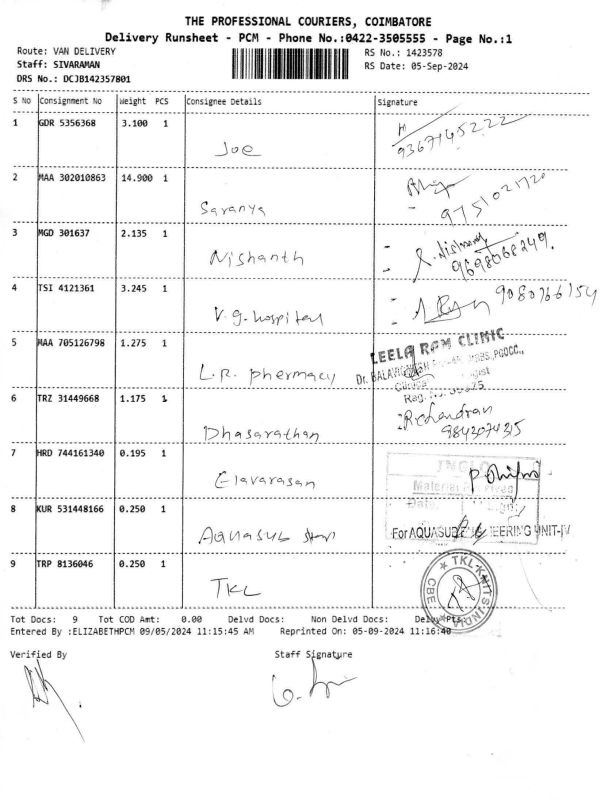 THE PROFESSIONAL COURIERS, COIMBATORE
Delivery Runsheet - PCM - Phone No.:0422-3505555 - Page No.:1
Route: VAN DELIVERY RS No.: 1423578
Staff: SIVARAMAN RS Date: 05-Sep-2024
DRS No.: DCJB142357801
S No Consignment No Weight PCS Consignee Details Signature
1 GDR 5356368 3.100 1 Joe 9367145222
2 MAA 302010863 14.900 1 Saranya 9751021720
3 MGD 301637 2.135 1 Nishanth 9698068249
4 TSI 4121361 3.245 1 V.G. hospital 9080766154
5 MAA 705126798 1.275 1 L.R. phermacy LEELA RAM CLINIC
6 TRZ 31449668 1.175 1 Dhasarathan R.chandran
9843074315
7 HRD 744161340 0.195 1 Elavarasan
8 KUR 531448166 0.250 1 Aquasub For AQUASUB ENGINEERING UNIT-IV
9 TRP 8136046 0.250 1 TKL TKL KNITS INDIA CBE
Tot Docs: 9 Tot COD Amt: 0.00 Delvd Docs: Non Delvd Docs: Delvy Pts:
Entered By :ELIZABETHPCM 09/05/2024 11:15:45 AM Reprinted On: 05-09-2024 11:16:40
Verified By Staff Signature